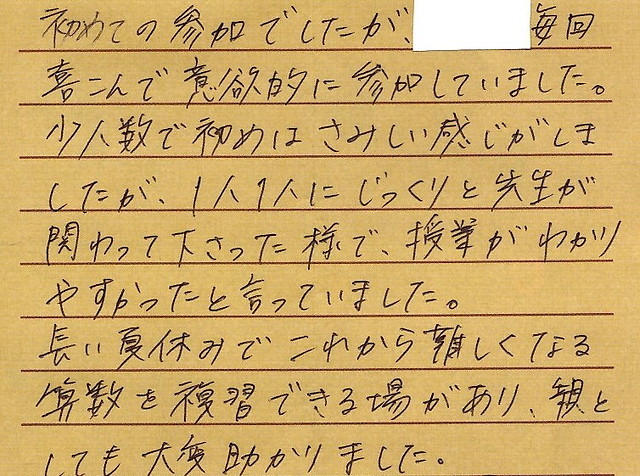 初めての参加でしたが、毎回
喜こんで意欲的に参加していました。
少人数で初めはさみしい感じがしま
したが、1人1人にじっくりと先生が
関わって下さった様で、授業がわかり
やすかったと言っていました。
長い夏休みでこれから難しくなる
算数を複習できる場があり、親と
しても大変助かりました。